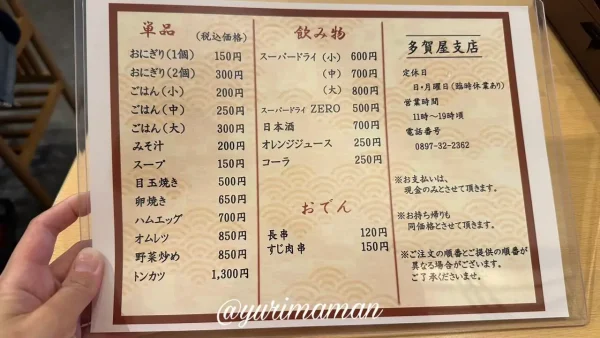 単品 (税込価格)
おにぎり(1個) 150円
おにぎり(2個) 300円
ごはん(小) 200円
ごはん(中) 250円
ごはん(大) 300円
みそ汁 200円
スープ 150円
目玉焼き 500円
卵焼き 650円
ハムエッグ 700円
オムレツ 850円
野菜炒め 850円
トンカツ 1,300円
飲み物
スーパードライ(小) 600円
(中) 700円
(大) 800円
スーパードライ ZERO 500円
日本酒 700円
オレンジジュース 250円
コーラ 250円
おでん
長串 120円
すじ肉串 150円
多賀屋支店
定休日
日・月曜日(臨時休業あり)
営業時間
11時~19時頃
電話番号
0897-32-2362
※お支払いは、
現金のみとさせて頂きます。
※お持ち帰りも
同価格とさせて頂きます。
※ご注文の順番とご提供の順番が
異なる場合がございます。
ご了承くださいませ。
@yurimaman